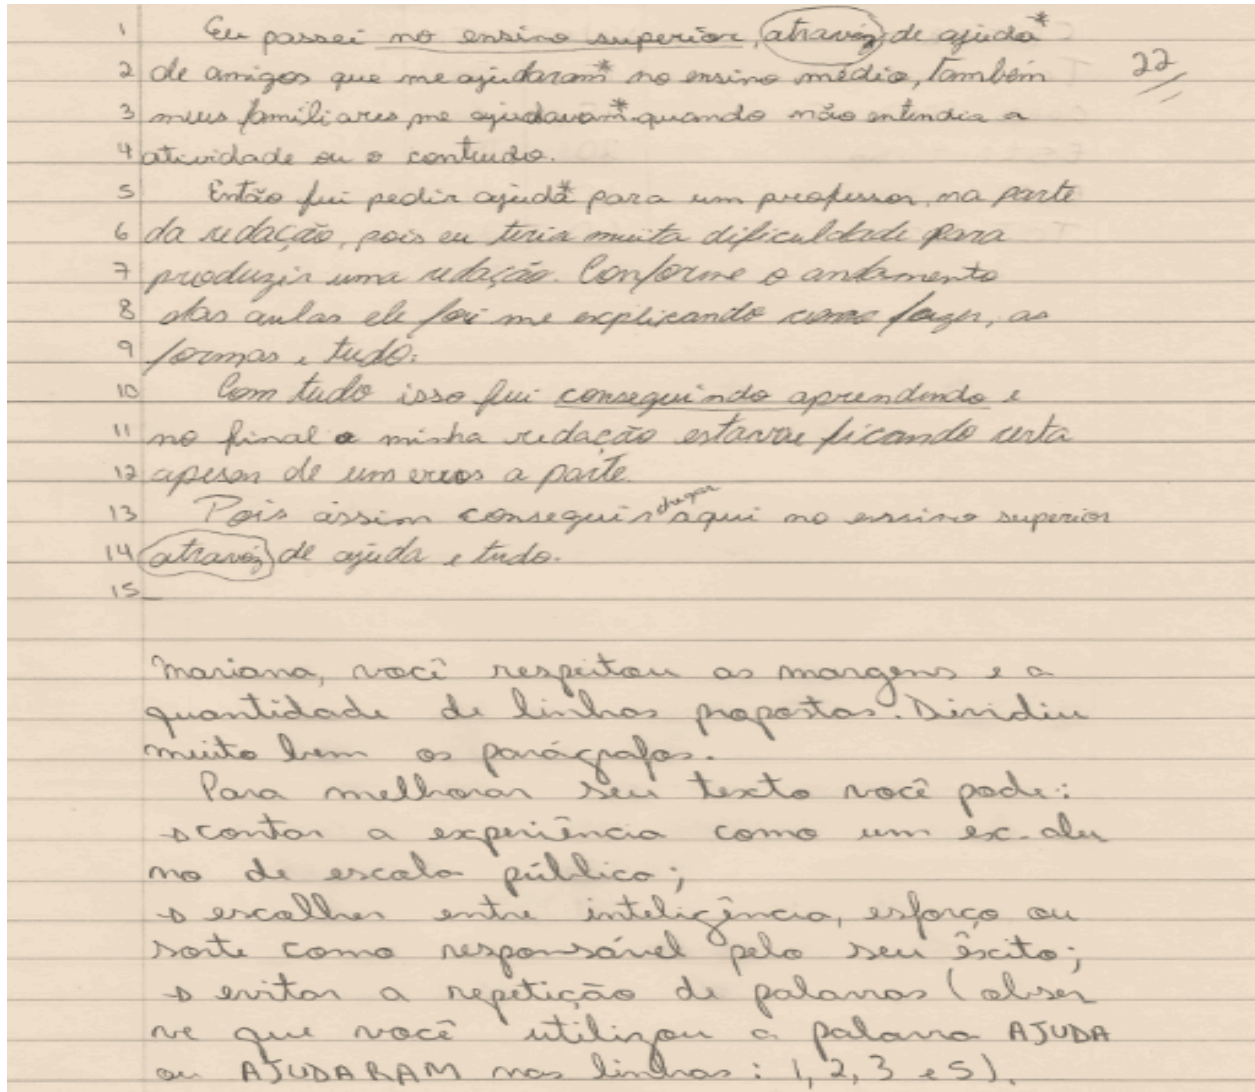 1 Eu passei no ensino superior, atravéz de ajuda*
2 de amigos que me ajudaram* no ensino médio, também
22
3 meus familiares me ajudavam* quando não entendia a
4 atividade ou o contrudo.
5 Então fui pedir ajuda* para um professor, na parte
6 da redação, pois eu teria muita dificuldade para
7 produzir uma redação. Conforme o andamento
8 das aulas ele foi me explicando como fazer, as
9 formas e tudo.
10 Com tudo isso fui conseguindo aprendendo e
11 no final a minha redação estavou ficando certa
12 apesar de um erros a parte.
13 Pois assim conseguir chegar aqui no ensino superior
14 atravéz de ajuda e tudo.
15
Mariana, você respeitou as margens e a
quantidade de linhas propostas. Dividiu
muito bem os parágrafos.
Para melhorar seu texto você pode:
→ contar a experiência como um ex-alu
no de escola pública;
→ escolher entre inteligência, esforço ou
sorte como responsável pelo seu êxito;
→ evitar a repetição de palavras (obser
ve que você utilizou a palavra AJUDA
ou AJUDARAM nas linhas: 1, 2, 3 e 5).